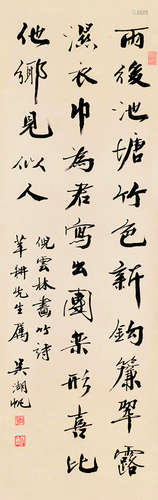 雨後池塘竹色新鈎簾翠露
濕衣巾為君寫出團栾形喜比
他鄉見似人
倪雲林畫竹詩
莘耕先生屬 吳湖帆